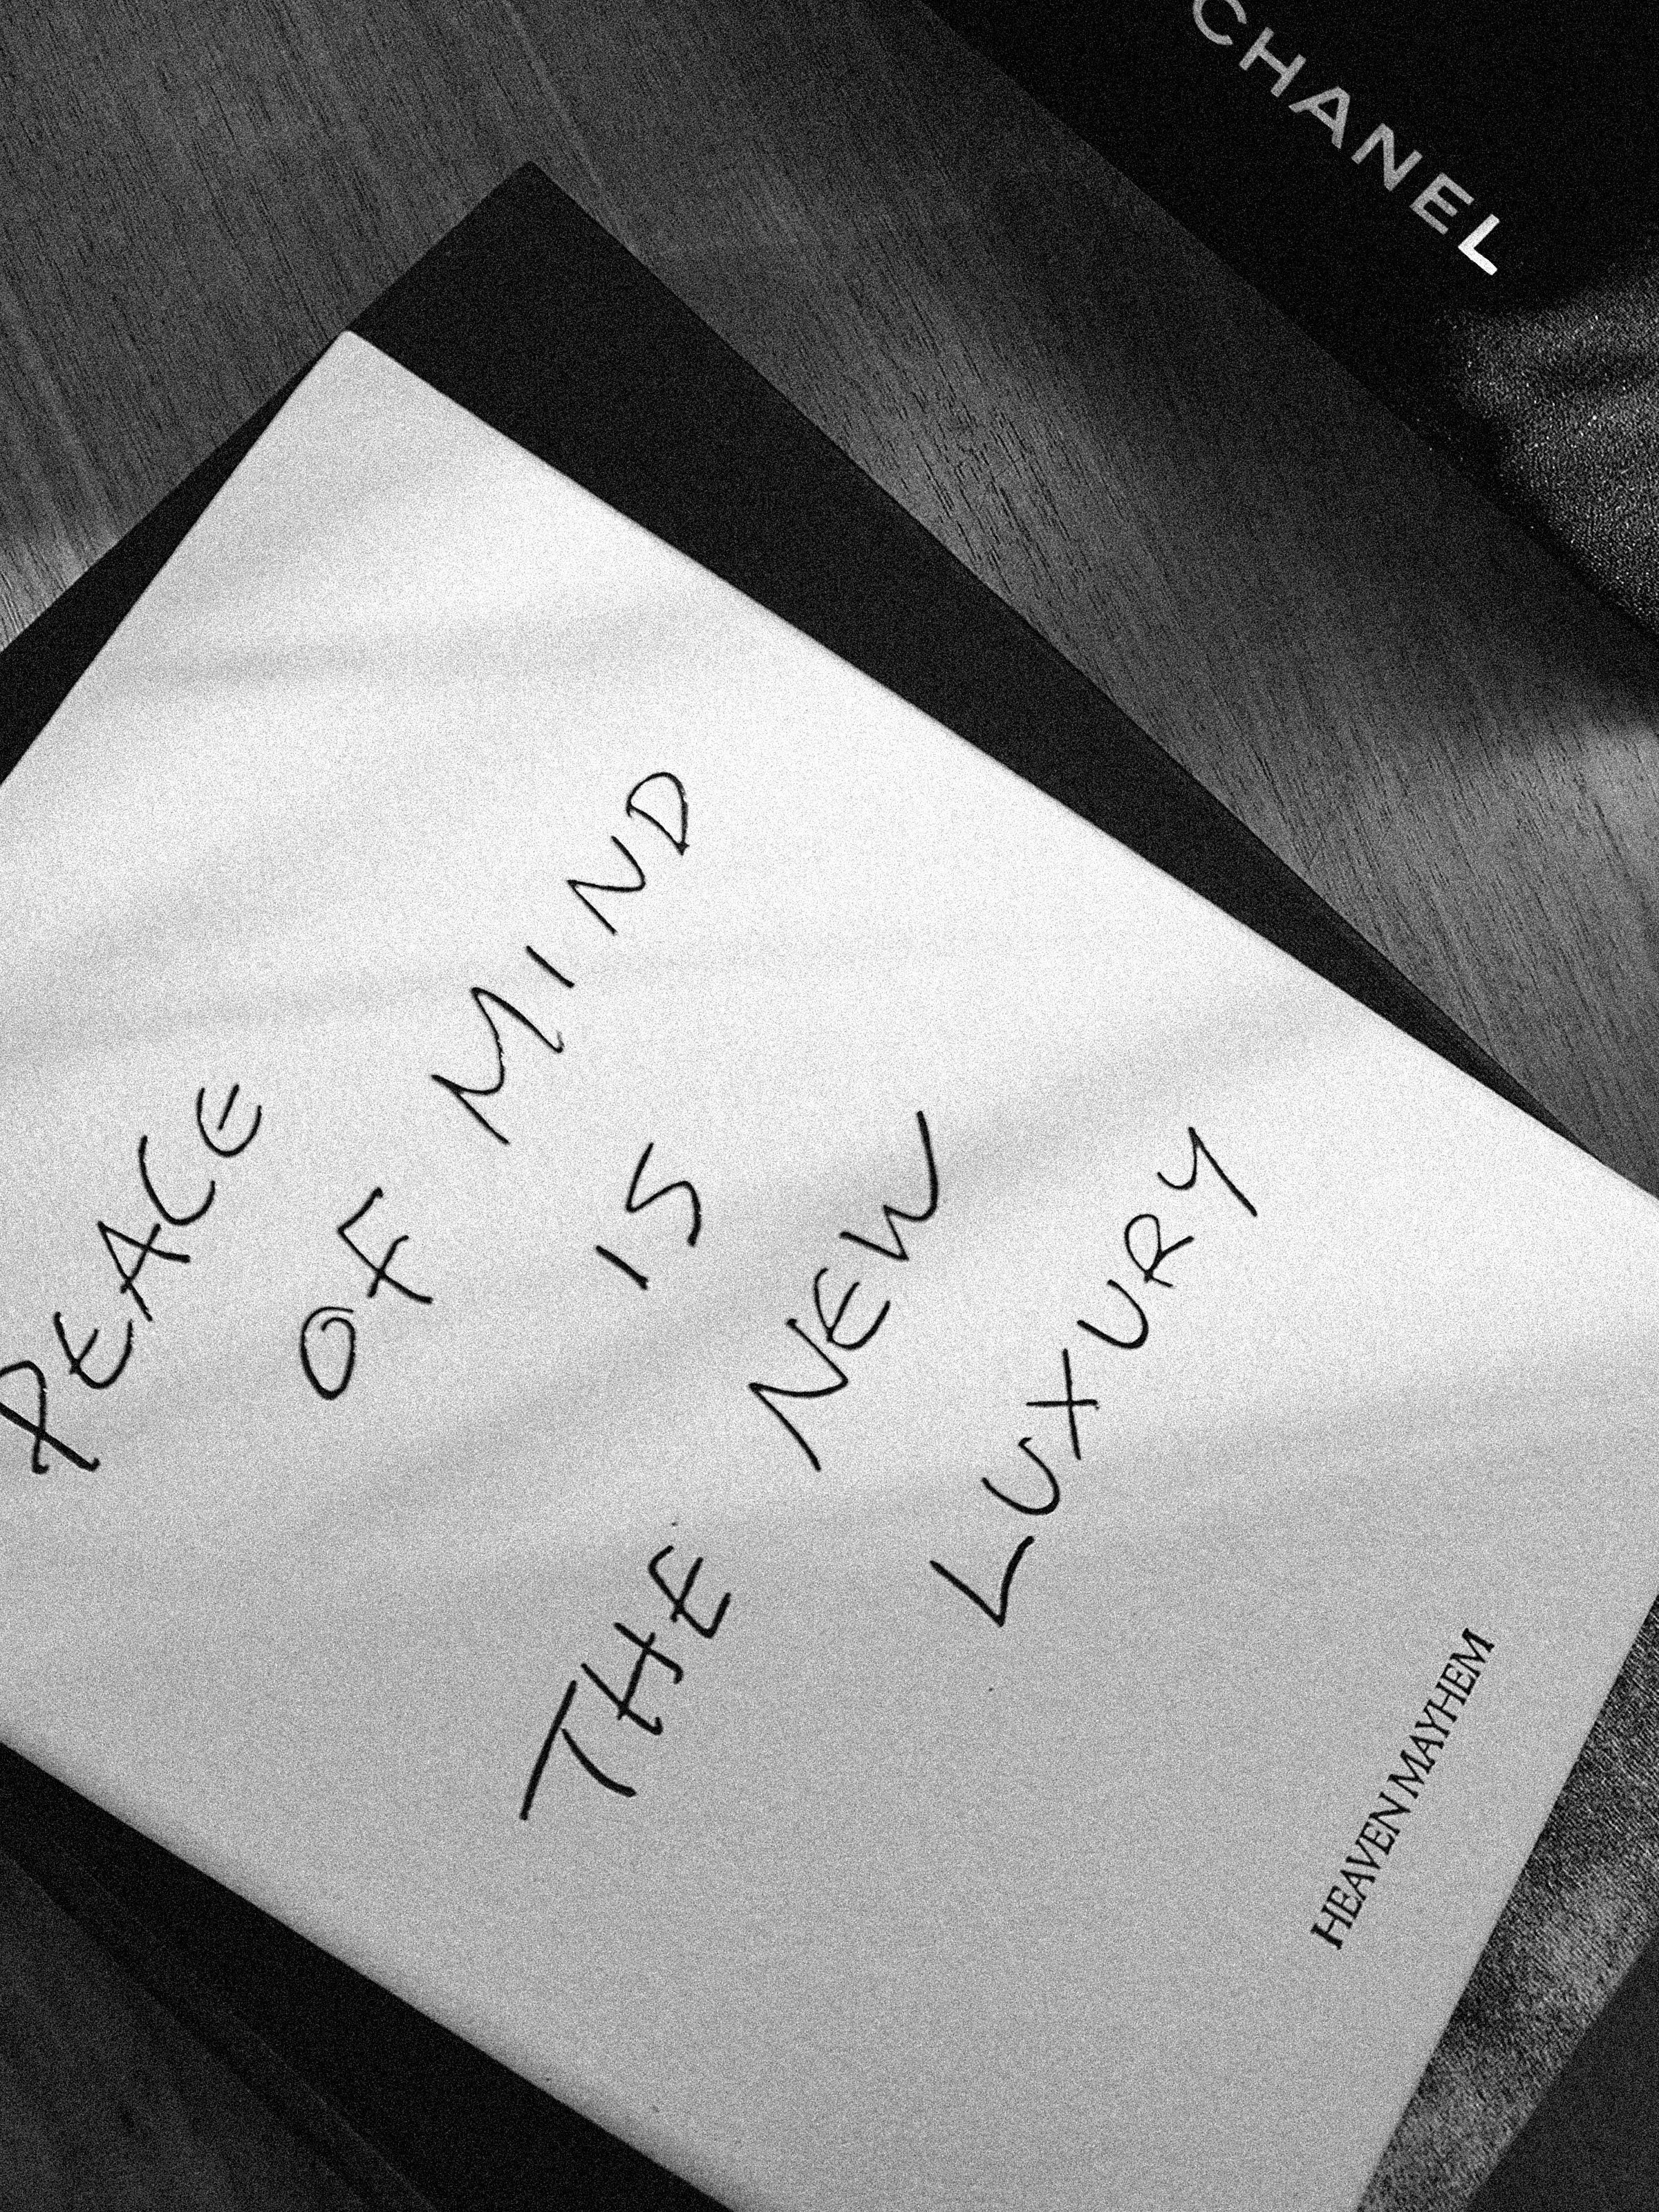 CHANEL
PEACE
OF MIND
IS
THE NEW
LUXURY
HEAVEN MAYHEM